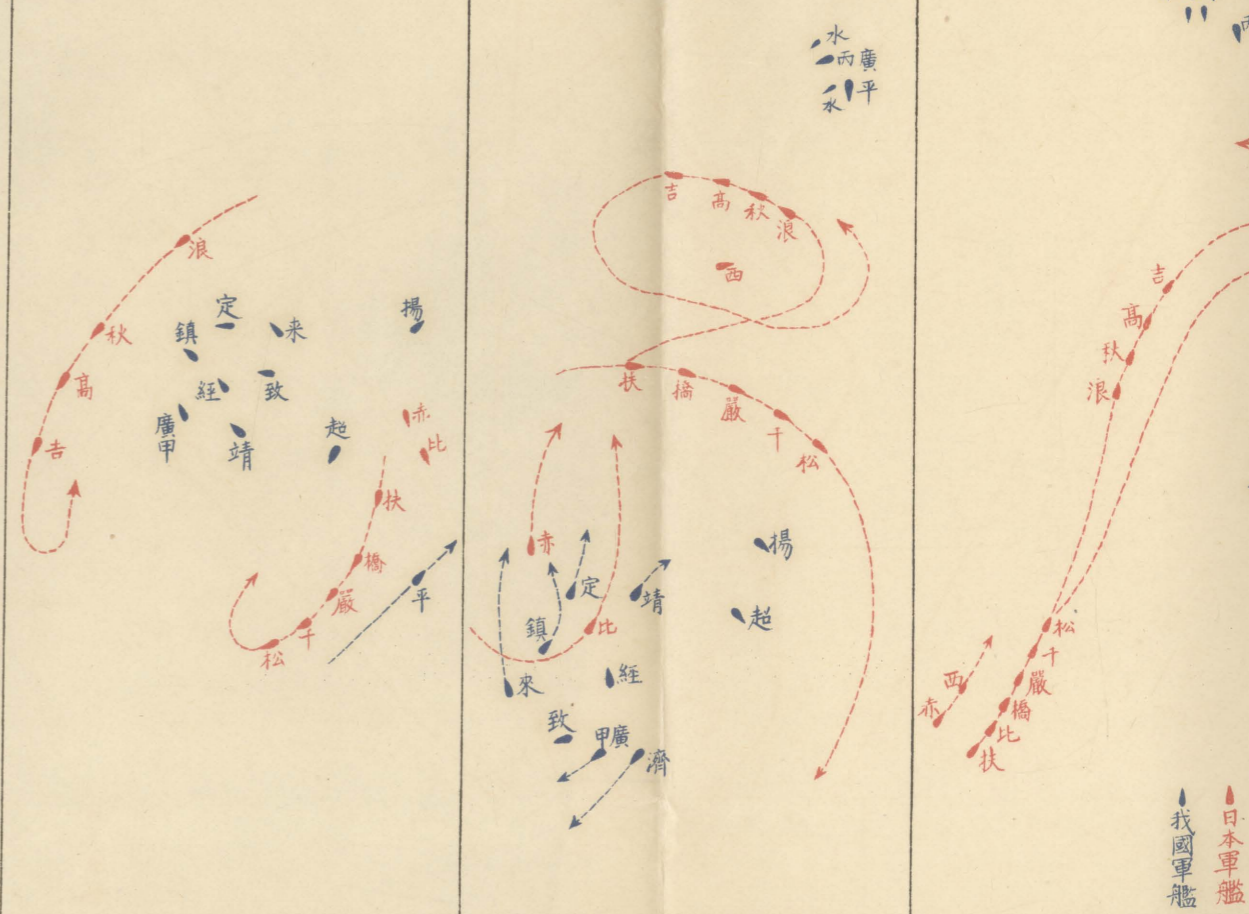 浪
秋
高
吉
定
鎮
来
揚
經
致
廣甲
靖
超
赤
比
扶
橋
嚴
千
松
平
水
丙
廣平
水
吉
高
秋
浪
西
扶
橋
嚴
千
松
赤
定
靖
揚
超
鎮
比
來
經
致
廣甲
濟
丙
吉
高
秋
浪
松
千
嚴
橋
比
扶
西
赤
日本軍艦
我國軍艦